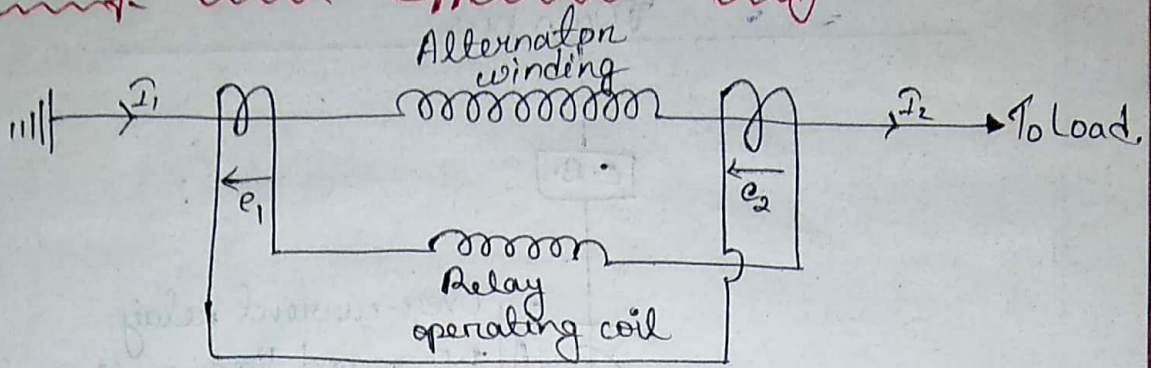 Alternator
winding
I₁
I₂
To Load.
e₁
e₂
Relay
operating coil